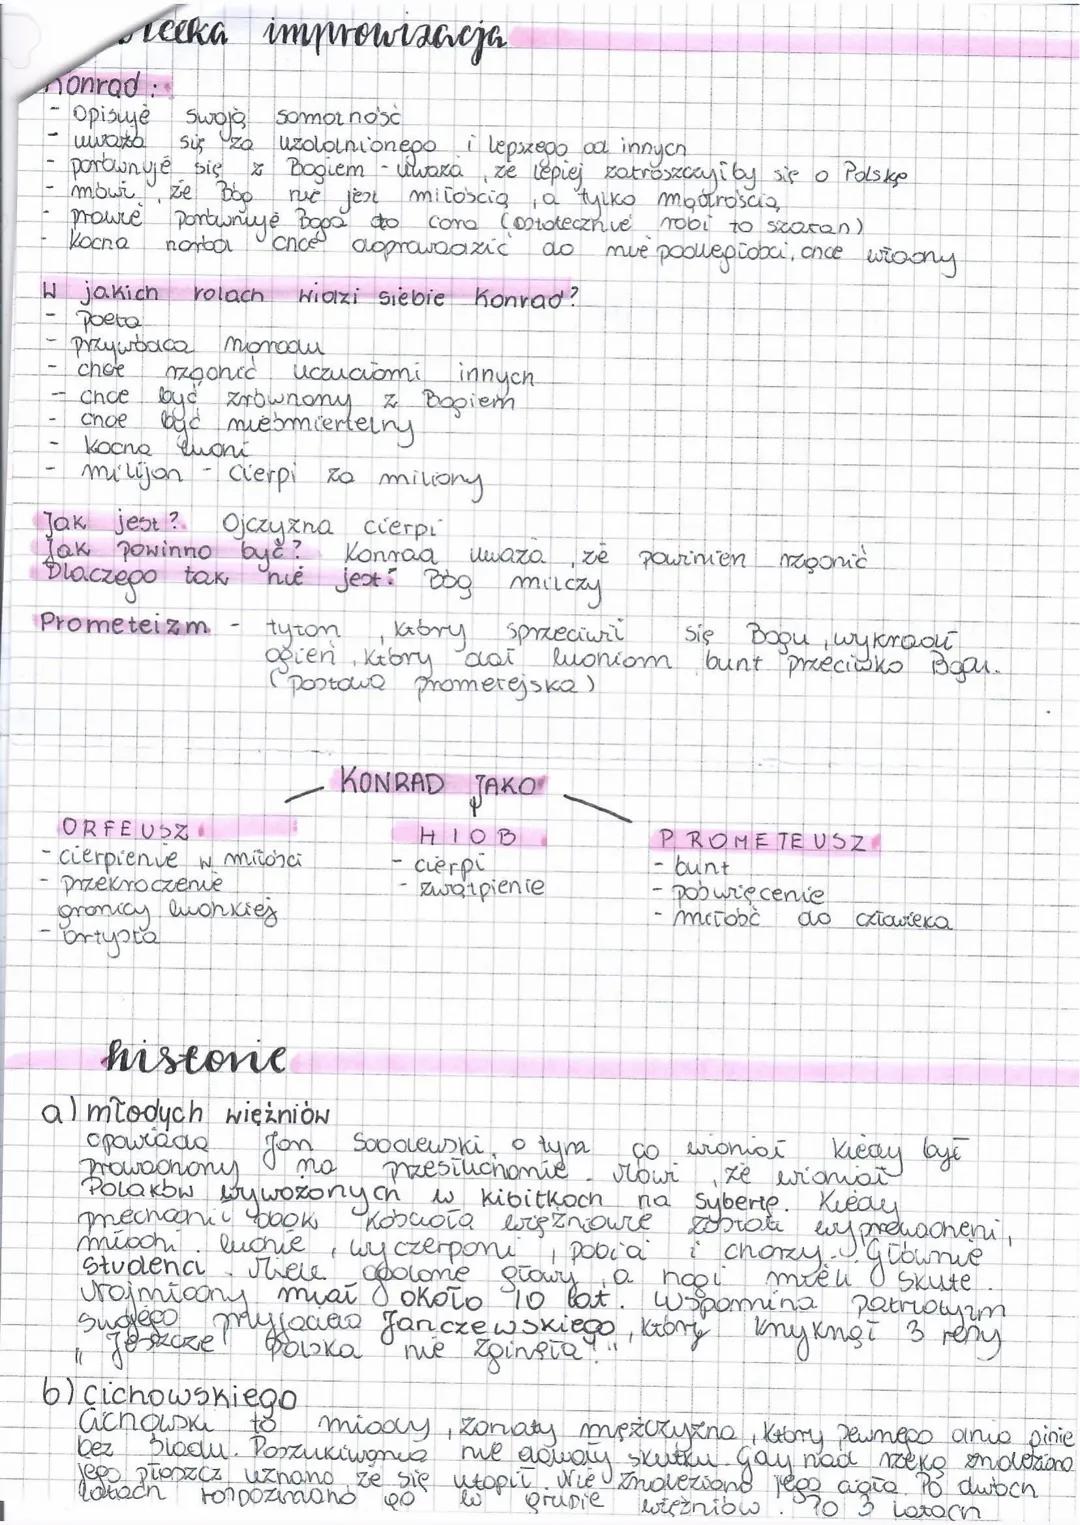 improwizacja
Konrad:
- opisuje swoją samotność
- uważa się za uzdolnionego i lepszego od innych
- porównuje się z Bogiem - uważa, że lepiej zatroszczyłby się o Polskę
- mówi, że Bóg nie jest miłością, a tylko mądrością
- prawie porównuje Boga do cara (ostatecznie robi to szatan)
- kocha naród, chce doprowadzić do niepodległości, chce władzy
W jakich rolach widzi siebie Konrad?
- poeta
- przywódca narodu
- chce rządzić uczuciami innych
- chce być zrównany z Bogiem
- chce być nieśmiertelny
- kocha ludzi
- milijon - cierpi za miliony
Jak jest? Ojczyzna cierpi
Jak powinno być? Konrad uważa, że powinien rządzić
Dlaczego tak nie jest? Bóg milczy
Prometeizm - tytan, który sprzeciwił się Bogu, wykradł
ogień, który dał ludziom, bunt przeciwko Bogu.
(postawa prometejska)
KONRAD JAKO
ORFEUSZ
- cierpienie w miłości
- przekroczenie
granicy ludzkiej
- artysta
HIOB
- cierpi
- zwątpienie
PROMETEUSZ
- bunt
- poświęcenie
- miłość do człowieka
historie
a) młodych więźniów
opowiada Jan Sobolewski, o tym co widział kiedy był
prowadzony na przesłuchanie. Mówi, że widział
Polaków wywożonych w kibitkach na Syberię. Kiedy
przechodził obok kościoła więźniowie zostali wyprowadzeni,
młodzi ludzie, wyczerpani, pobici i chorzy. Głównie
studenci. Mieli ogolone głowy, a nogi mieli skute.
Najmłodszy miał około 10 lat. Wspomina patriotyzm
swojego przyjaciela Janczewskiego, który krzyknął 3 razy
"Jeszcze Polska nie zginęła!"
b) Cichowskiego
Cichowski to młody, żonaty mężczyzna, który pewnego dnia ginie
bez śladu. Poszukiwania nie dawały skutku. Gdy nad rzeką znaleziono
jego płaszcz uznano że się utopił. Nie znaleziono jego ciała. Po dwóch
latach rozpoznano go w grupie więźniów. Po 3 latach